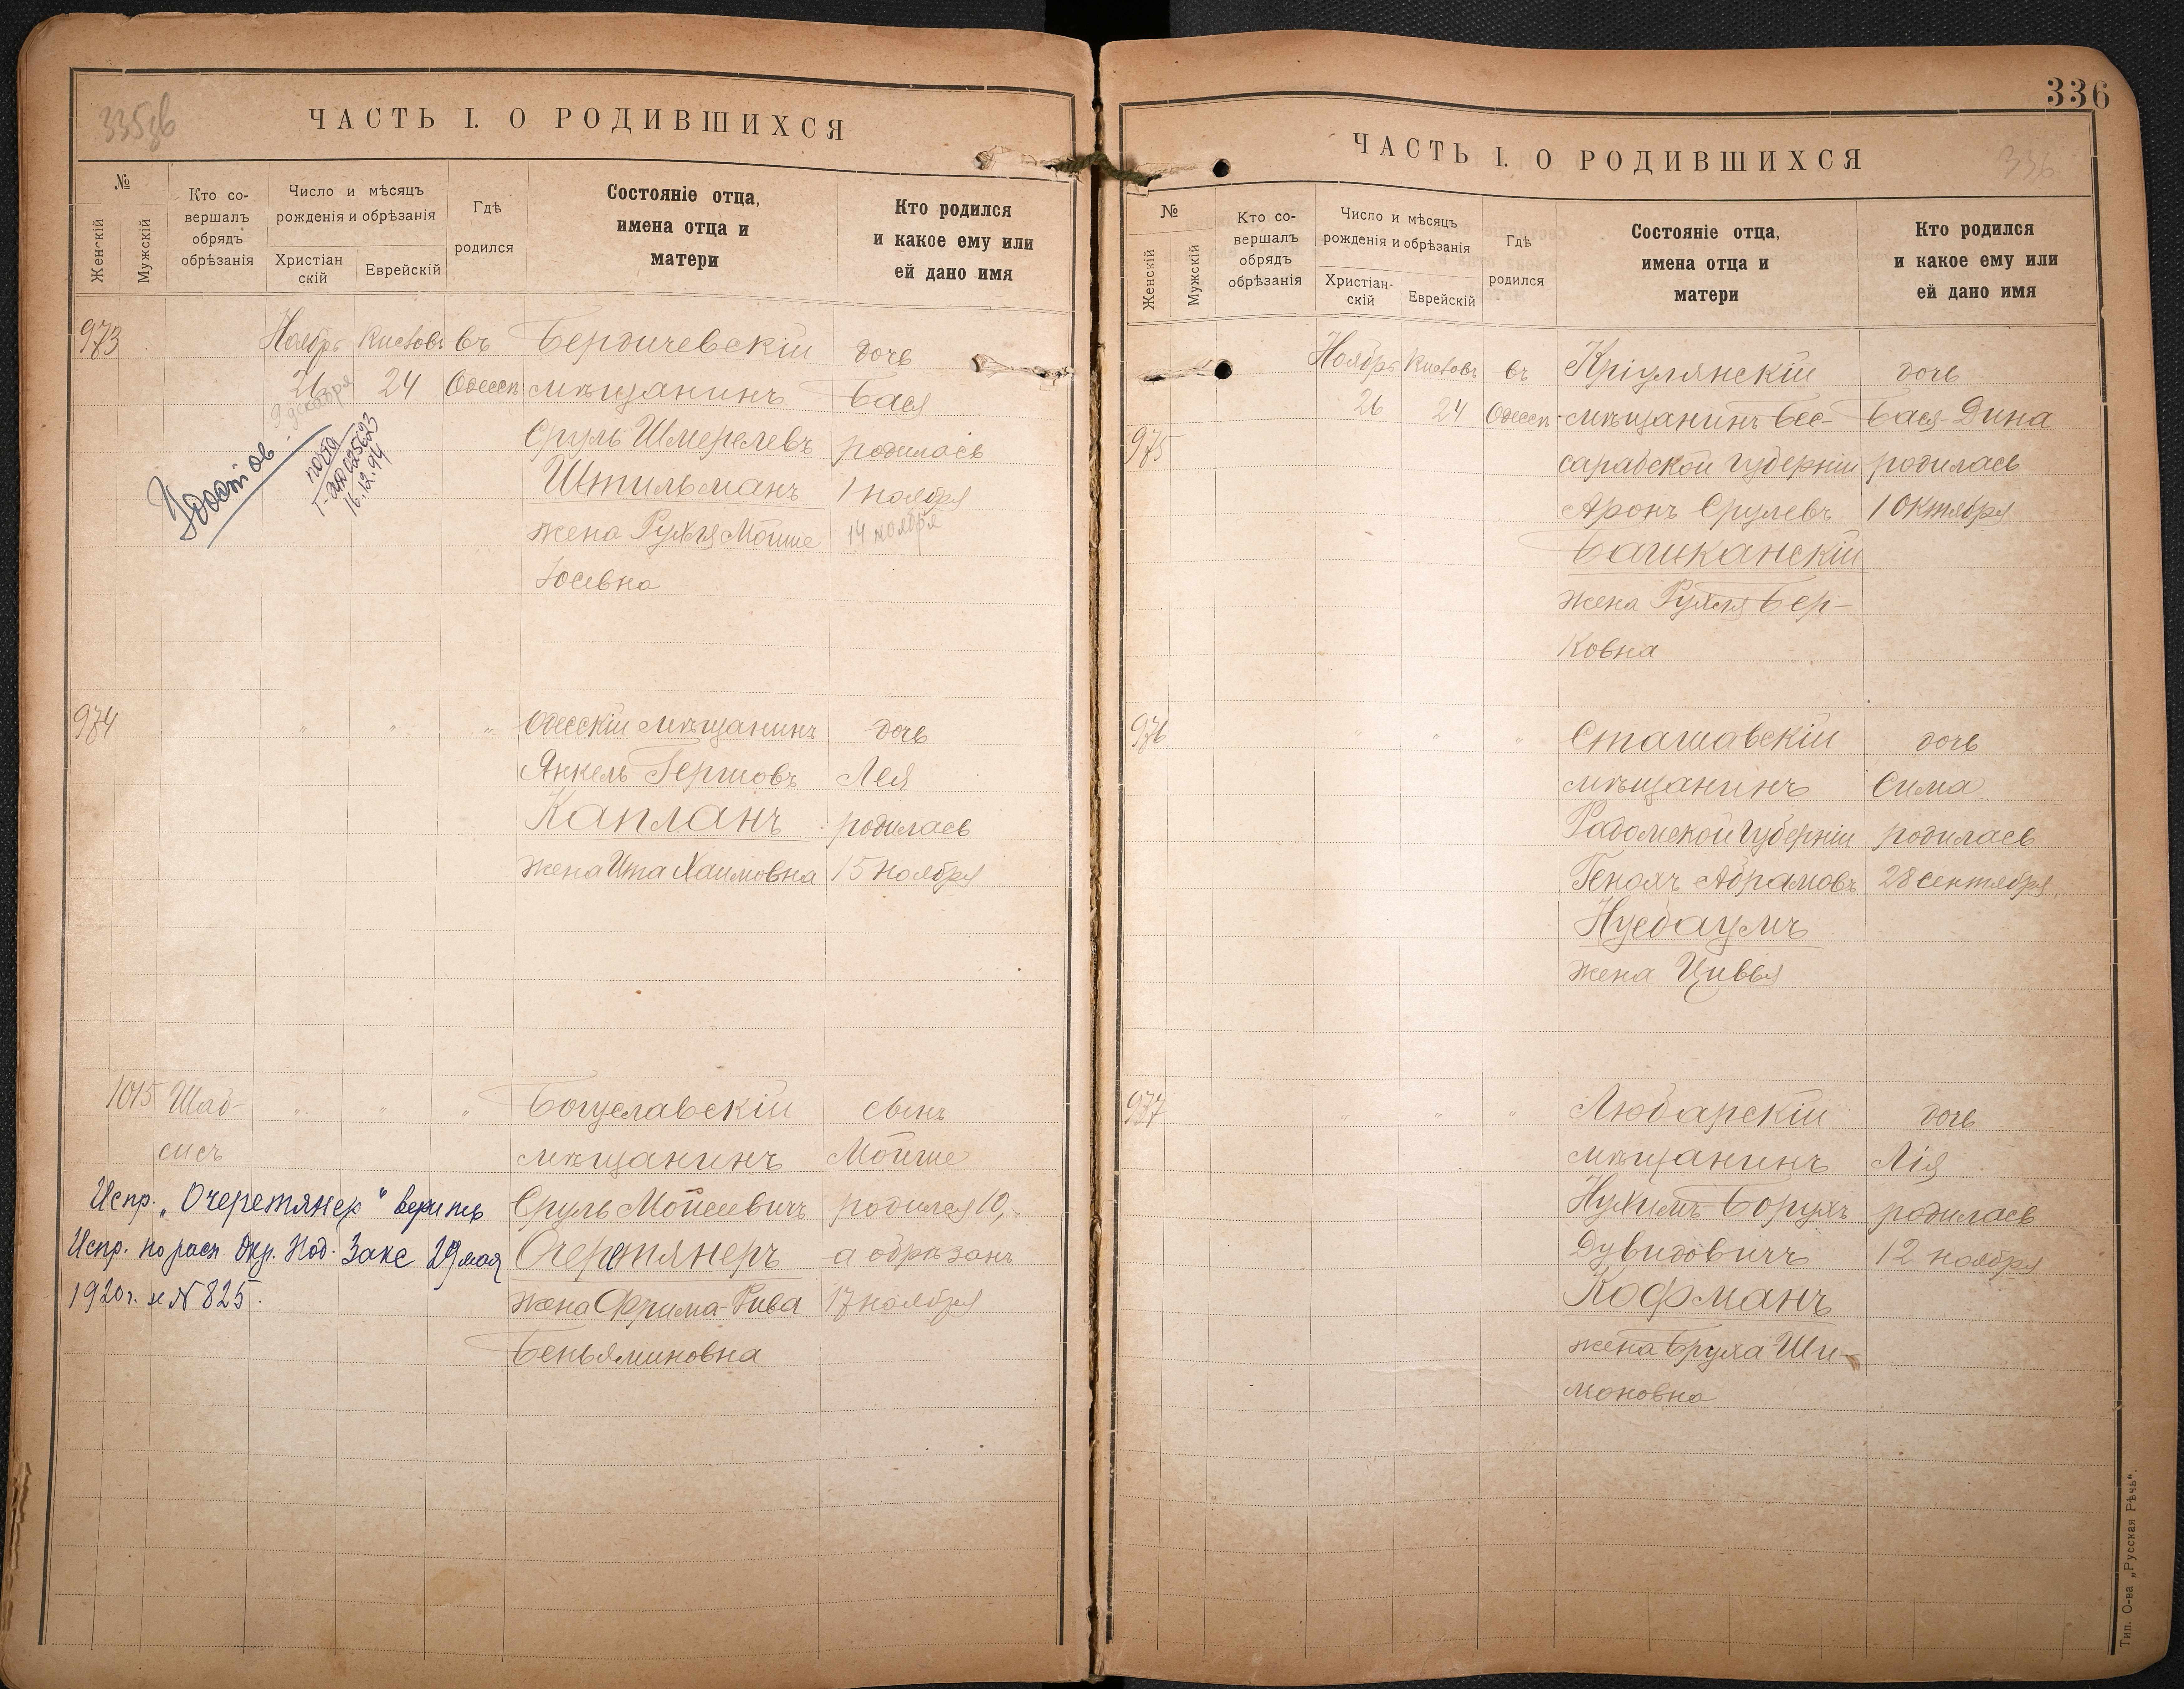 335 зв
ЧАСТЬ I. О РОДИВШИХСЯ
№
Женскій
Мужскій
Кто со-
вершалъ
обрядъ
обрѣзанія
Число и мѣсяцъ
рожденія и обрѣзанія
Христіан
скій
Еврейскій
Гдѣ
родился
Состояніе отца,
имена отца и
матери
Кто родился
и какое ему или
ей дано имя
973 Ноябрь Кислевъ въ Бердичевскій дочь
26 24 Одессѣ мѣщанинъ Бася
9 декабря
Сруль Шмерелевъ родилась
Штильманъ 1 ноября
жена Рухля Мойше 14 ноября
Юсевна
16.12.94
974 " " " Одесскій мѣщанинъ дочь
Янкель Гершовъ Лея
Капланъ родилась
жена Ита Хаимовна 15 ноября
1015 Шаб- " " " Богуславскій сынъ
сисъ мѣщанинъ Мойше
Испр. „Очеретянер" верить Сруль Мойсеевичъ родился 10,
Испр. по расп. Окр. Под. Закс 29 мая Очеретянеръ а обрѣзанъ
1920 г. н N 825. жена Фрима-Рива 17 ноября
Беньяминовна
336
ЧАСТЬ I. О РОДИВШИХСЯ
336
№
Женскій
Мужскій
Кто со-
вершалъ
обрядъ
обрѣзанія
Число и мѣсяцъ
рожденія и обрѣзанія
Христіан-
скій
Еврейскій
Гдѣ
родился
Состояніе отца,
имена отца и
матери
Кто родился
и какое ему или
ей дано имя
Ноябрь Кислевъ въ Кріулянскій дочь
26 24 Одессѣ мѣщанинъ Бес- Бася-Дина
975 сарабской губерніи родилась
Аронъ Срулевъ 1 Октября
Башканскій
жена Рухля Бер-
ковна
976 " " " Сташавскій дочь
мѣщанинъ Сима
Радомской губерніи родилась
Генохъ Абрамовъ 28 сентября
Нусбаумъ
жена Цивья
977 " " " Любарскій дочь
мѣщанинъ Лія
Нухимъ-Борухъ родилась
Дувидовичъ 12 ноября
Кофманъ
жена Бруха Ши-
моновна
Тип. О-ва „Русская Рѣчь".